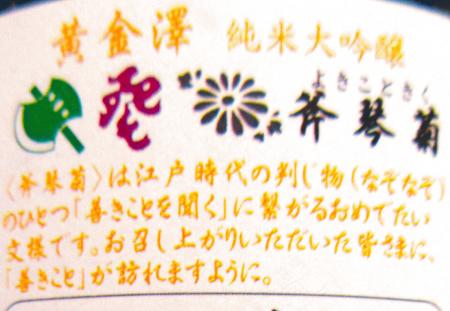 黄金澤 純米大吟醸
よきこときく
斧琴菊
〈斧琴菊〉は江戸時代の判じ物(なぞなぞ)
のひとつ「善きことを聞く」に繋がるおめでたい
文様です。お召し上がりいただいた皆さまに、
「善きこと」が訪れますように。